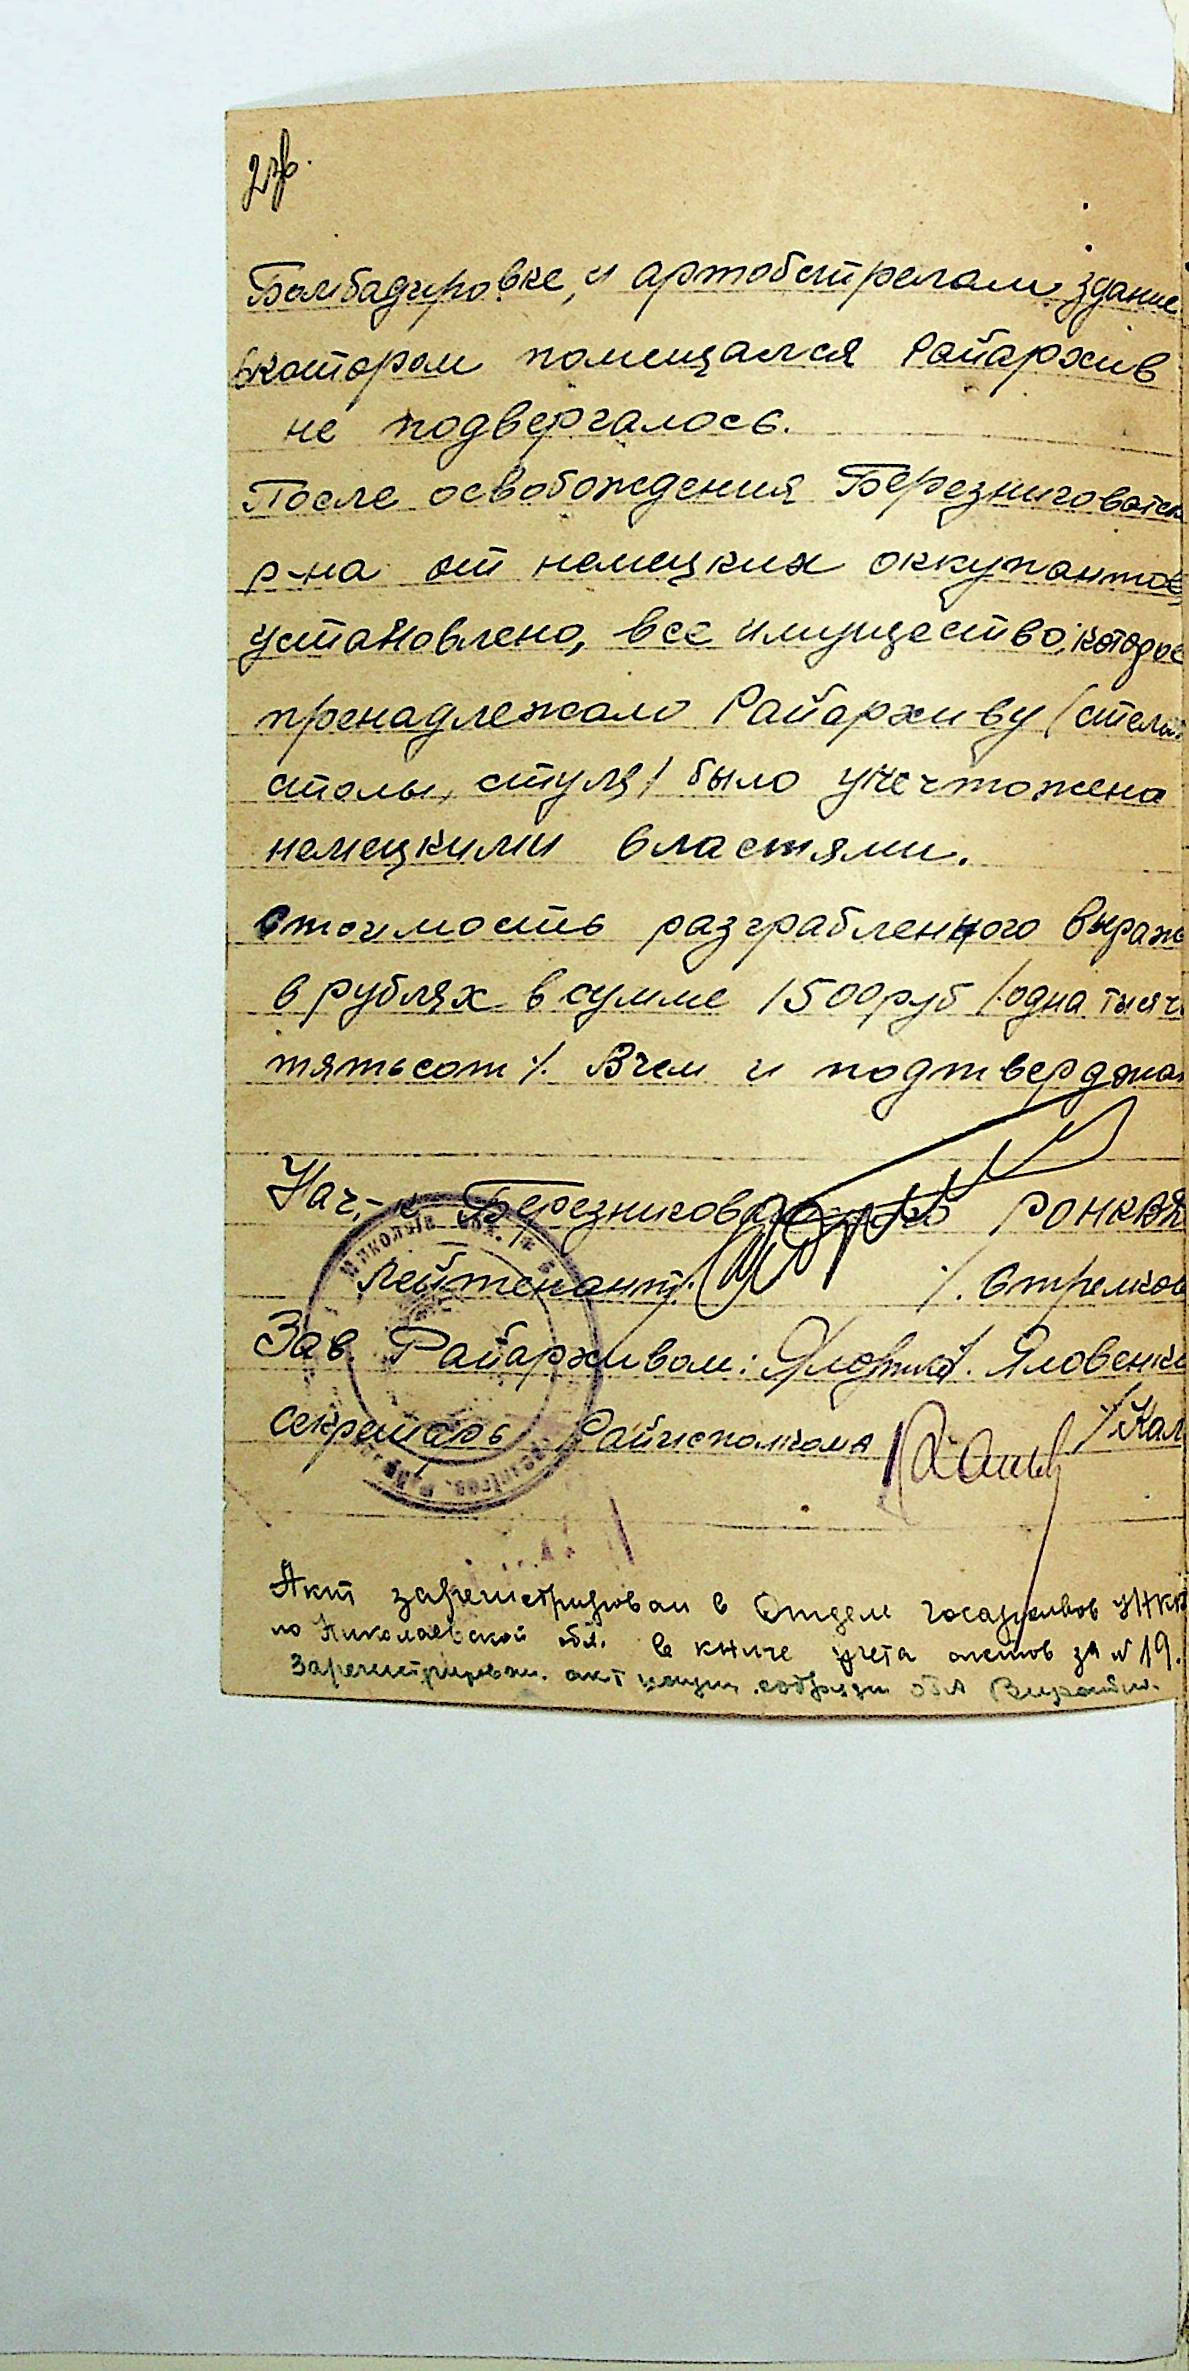 Бомбадировке, и артобстрелам здание
вкотором помещался Райархив
не подвергалось.
После освобождения Березниговатск
р-на от немецких оккупантов,
установлено, все имущество, которое
пренадлежало Райархиву (стела
столы, стуля/ было унечтожена
немецкими властями.
Стоимость разграбленного выраж
в рублях в сумме 1500 руб /одна тысяч
пятьсот/. Вчем и подтверджа
Нач,-к Березниговатского РОНКВД
лейтенант /. Стрелков
Зав Райархивом: Яловенко
секретарь Райисполкома /Кал
Акт зарегистрирован в Отделе госархивов УНКВ
по Николаевской обл. в книге учета актов за № 19.
Зарегистрирован. акт